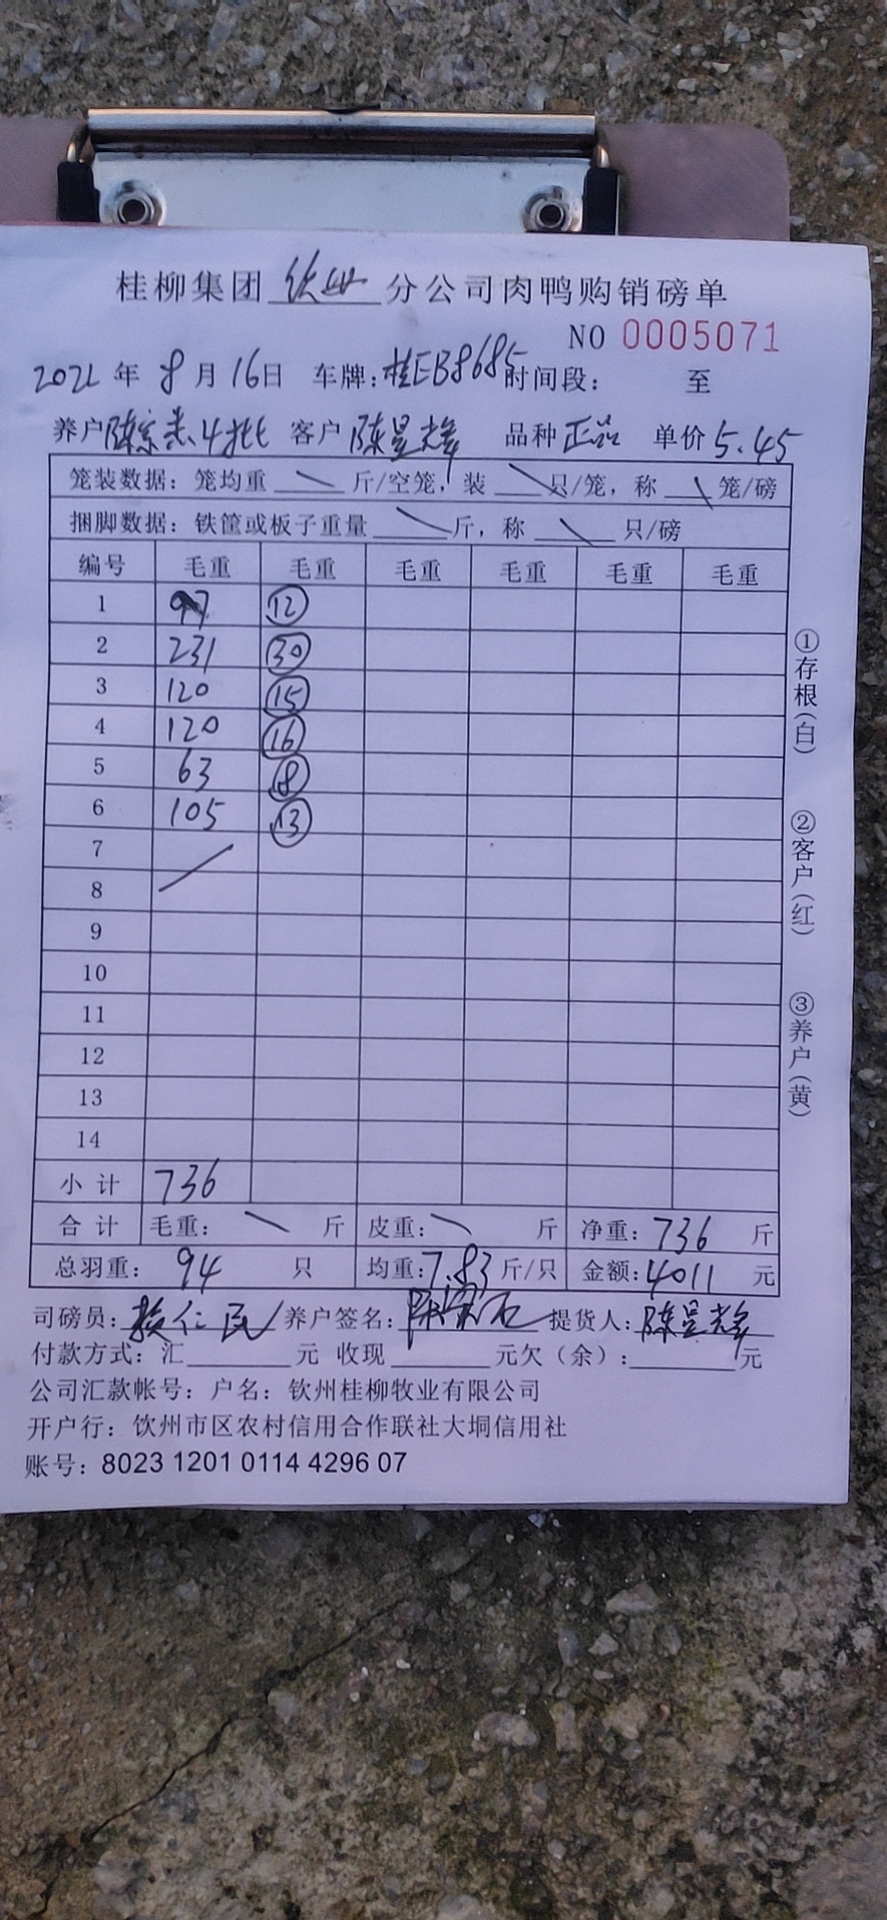 桂柳集团 钦州 分公司肉鸭购销磅单
NO 0005071
2022 年 8 月 16 日 车牌：桂EB8685 时间段： 至
养户 陈宗 4批 客户 陈显 品种 正品 单价 5.45
笼装数据：笼均重 \ 斤/空笼，装 \ 只/笼，称 \ 笼/磅
捆脚数据：铁筐或板子重量 \ 斤，称 \ 只/磅
编号 毛重 毛重 毛重 毛重 毛重 毛重
1 97 ⑫
2 231 ㉚
3 120 ⑮
4 120 ⑯
5 63 ⑧
6 105 ⑬
7
8
9
10
11
12
13
14
小 计 736
合 计 毛重： \ 斤 皮重： \ 斤 净重：736 斤
总羽重： 94 只 均重：7.83 斤/只 金额：4011 元
司磅员： 仁民 养户签名： 陈 提货人：陈显
付款方式：汇 元 收现 元欠（余）： 元
公司汇款帐号：户名：钦州桂柳牧业有限公司
开户行：钦州市区农村信用合作联社大垌信用社
账号：8023 1201 0114 4296 07
①存根（白）
②客户（红）
③养户（黄）